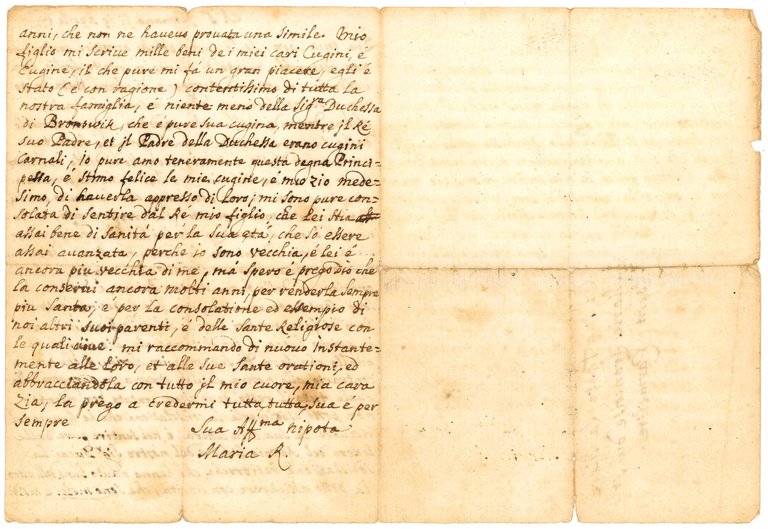 anni, che non ne havevo provata una simile. Mio
figlio mi scrive mille beni de i miei cari Cugini, é
Cugine, il che pure mi fá un gran piacere, egli é
stato (é con ragione) contentissimo di tutta la
nostra famiglia, é niente meno della Sig.ra Duchessa
di Bronswik, che é pure sua cugina, mentre il Ré
suo Padre, et il Padre della Duchessa erano cugini
Carnali, io pure amo teneramente questa degna Princi-
pessa, é stimo felice le mie cugine, é mio zio mede-
simo, di haverla appresso di loro; mi sono pure con-
solata di sentire dal Ré mio figlio, che lei stia
assai bene di sanitá per la sua etá, che só essere
assai avanzata, perche io sono vecchia, é lei é
ancora piu vecchia di me, má spero é prego dio che
la conservi ancora molti anni, per renderla sempre
piu Santa, é per la consolatione ed essempio di
noi altri suoi parenti, é delle Sante Religiose con
le quali vive. mi raccommando di nuovo instante-
mente alle loro, et alle sue Sante orationi, ed
abbracciandola con tutto il mio cuore, mia cara
Zia, la prego a credermi tutta, tutta, sua é per
sempre
Sua Aff.ma nipota
Maria R.